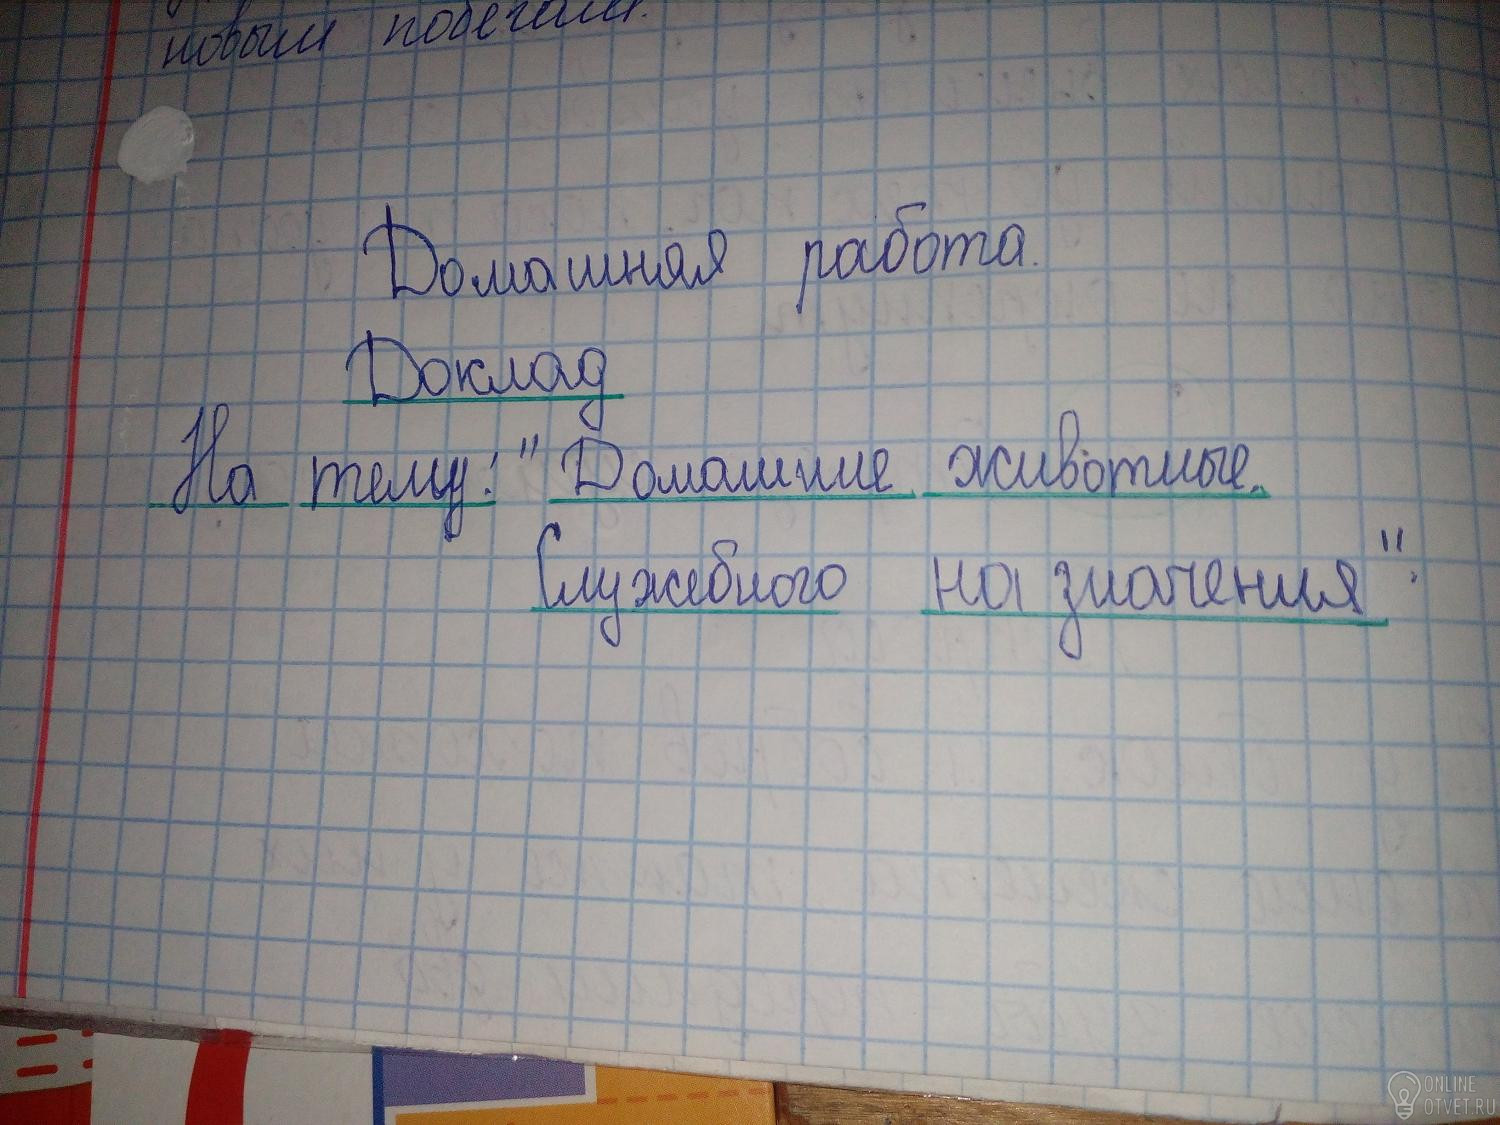 новым побегам.
Домашняя работа.
Доклад
На тему: "Домашние животные.
Служебного назначения".
ONLINE
OTVET.RU